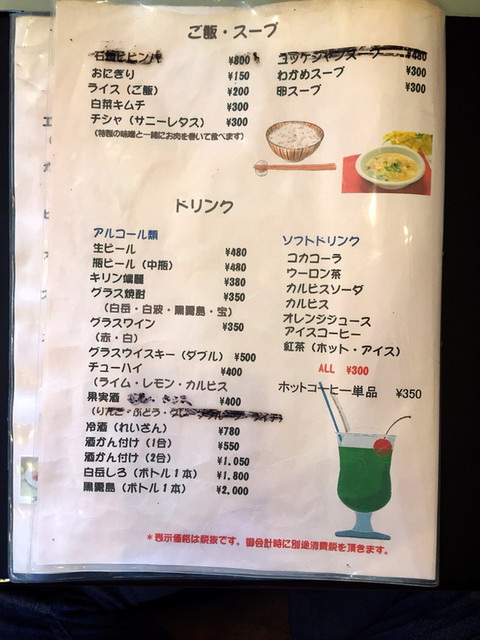 ご飯・スープ
石焼ビビンバ ¥800
おにぎり ¥150
ライス（ご飯） ¥200
白菜キムチ ¥300
チシャ（サニーレタス） ¥300
（特製の味噌と一緒にお肉を巻いて食べます）
ユッケジャンスープ ¥480
わかめスープ ¥300
卵スープ ¥300
ドリンク
アルコール類
生ビール ¥480
瓶ビール（中瓶） ¥480
キリン端麗 ¥380
グラス焼酎 ¥350
（白岳・白波・黒霧島・宝）
グラスワイン ¥350
（赤・白）
グラスウイスキー（ダブル） ¥500
チューハイ ¥400
（ライム・レモン・カルピス
果実酒 ¥400
（りんご・ぶどう・グレープフルーツ・ライチ）
冷酒（れいざん） ¥780
酒かん付け（1合） ¥550
酒かん付け（2合） ¥1,050
白岳しろ（ボトル１本） ¥1,800
黒霧島（ボトル１本） ¥2,000
ソフトドリンク
コカコーラ
ウーロン茶
カルピスソーダ
カルピス
オレンジジュース
アイスコーヒー
紅茶（ホット・アイス）
ALL ¥300
ホットコーヒー単品 ¥350
＊表示価格は税抜です。御会計時に別途消費税を頂きます。